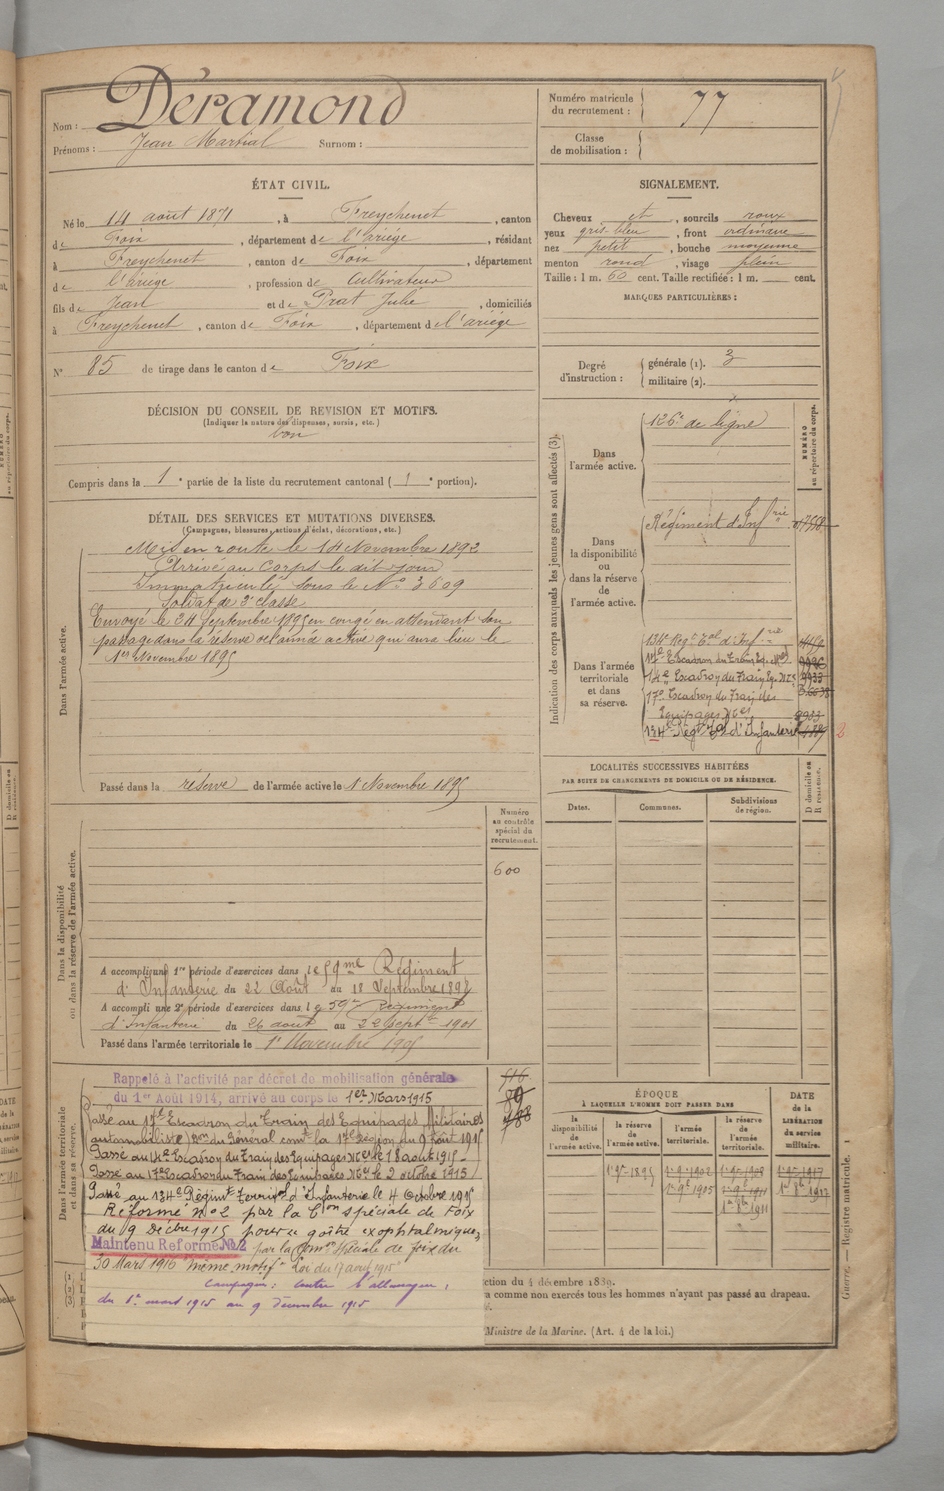 Nom : Déramond
Prénoms : Jean Martial Surnom :
Numéro matricule du recrutement : 77
Classe de mobilisation :
ÉTAT CIVIL.
Né le 14 août 1871, à Freychenet, canton
de Foix, département de l'ariége, résidant
à Freychenet, canton de Foix, département
de l'ariége, profession de Cultivateur
fils de Jean et de Prat Julie, domiciliés
à Freychenet, canton de Foix, département de l'ariége
N° 85 de tirage dans le canton de Foix
SIGNALEMENT.
Cheveux et, sourcils roux
yeux gris-bleu, front ordinaire
nez petit, bouche moyenne
menton rond, visage plein
Taille : 1 m. 60 cent. Taille rectifiée : 1 m. cent.
MARQUES PARTICULIÈRES :
Degré d'instruction : générale (1). 3
militaire (2).
DÉCISION DU CONSEIL DE REVISION ET MOTIFS.
(Indiquer la nature des dispenses, sursis, etc.)
bon
Compris dans la 1e partie de la liste du recrutement cantonal (1e portion).
DÉTAIL DES SERVICES ET MUTATIONS DIVERSES.
(Campagnes, blessures, actions d'éclat, décorations, etc.)
Dans l'armée active.
Mis en route le 14 Novembre 1892
Arrivé au Corps le dit jour
Immatriculé sous le N° 3609
Soldat de 2e classe
Envoyé le 24 Septembre 1895 en congé en attendant son
passage dans la réserve de l'armée active qui aura lieu le
1er Novembre 1895
Passé dans la réserve de l'armée active le 1 Novembre 1895
Indication des corps auxquels les jeunes gens sont affectés (3).
NUMÉRO au répertoire du corps.
Dans l'armée active.
126e de ligne
Dans la disponibilité ou dans la réserve de l'armée active.
Régiment d'Infrie
Dans l'armée territoriale et dans sa réserve.
134e Régt Tal d'Infrie
17e Escadron du Train Eq. Mres
14e Escadron du Train Eq. Mres 9933
17e Escadron du Train des
Equipages Mres 9933
134e Régt Tal d'Infanterie
2
LOCALITÉS SUCCESSIVES HABITÉES
PAR SUITE DE CHANGEMENTS DE DOMICILE OU DE RÉSIDENCE.
Dates. Communes. Subdivisions de région. D domicile ou R résidence.
Numéro au contrôle spécial du recrutement.
600
Dans la disponibilité ou dans la réserve de l'armée active.
A accompli une 1re période d'exercices dans le 59me Régiment
d'Infanterie du 22 Août au 18 Septembre 1898
A accompli une 2e période d'exercices dans le 59e Régiment
d'Infanterie du 26 août au 22 Septe 1901
Passé dans l'armée territoriale le 1er Novembre 1905
Dans l'armée territoriale et dans sa réserve.
Rappelé à l'activité par décret de mobilisation générale
du 1er Août 1914, arrivé au corps le 1er Mars 1915
Passé au 17e Escadron du Train des Equipages Militaires
automobiliste) on du Général comt la 17e Région du 9 Août 1915
Passé au 14e Escadron du Train des Equipages Mres le 18 août 1915
Passé au 17e Escadron du Train des Equipages Mres le 2 octobre 1915
Passé au 134e Régimt Territl d'Infanterie le 4 Octobre 1915
Réformé n°2 par la Con spéciale de Foix
du 9 Décbre 1915 pour « goître exophtalmique »
Maintenu Réformé No 2 par la Comon Spéciale de Foix du
30 Mars 1916 même motif Loi du 17 août 1915
Campagne : contre l'allemagne :
du 1er mars 1915 au 9 décembre 1915
616
89
ÉPOQUE
À LAQUELLE L'HOMME DOIT PASSER DANS
la disponibilité de l'armée active. la réserve de l'armée active. l'armée territoriale. la réserve de l'armée territoriale. DATE de la LIBÉRATION du service militaire.
1 9bre 1895 1 9bre 1902 1 9bre 1908 1 9bre 1917
1 9bre 1905 1 9bre 1911
1er 8bre 1911
ction du 4 décembre 1889.
a comme non exercés tous les hommes n'ayant pas passé au drapeau.
Ministre de la Marine. (Art. 4 de la loi.)
Guerre. — Registre matricule. 1